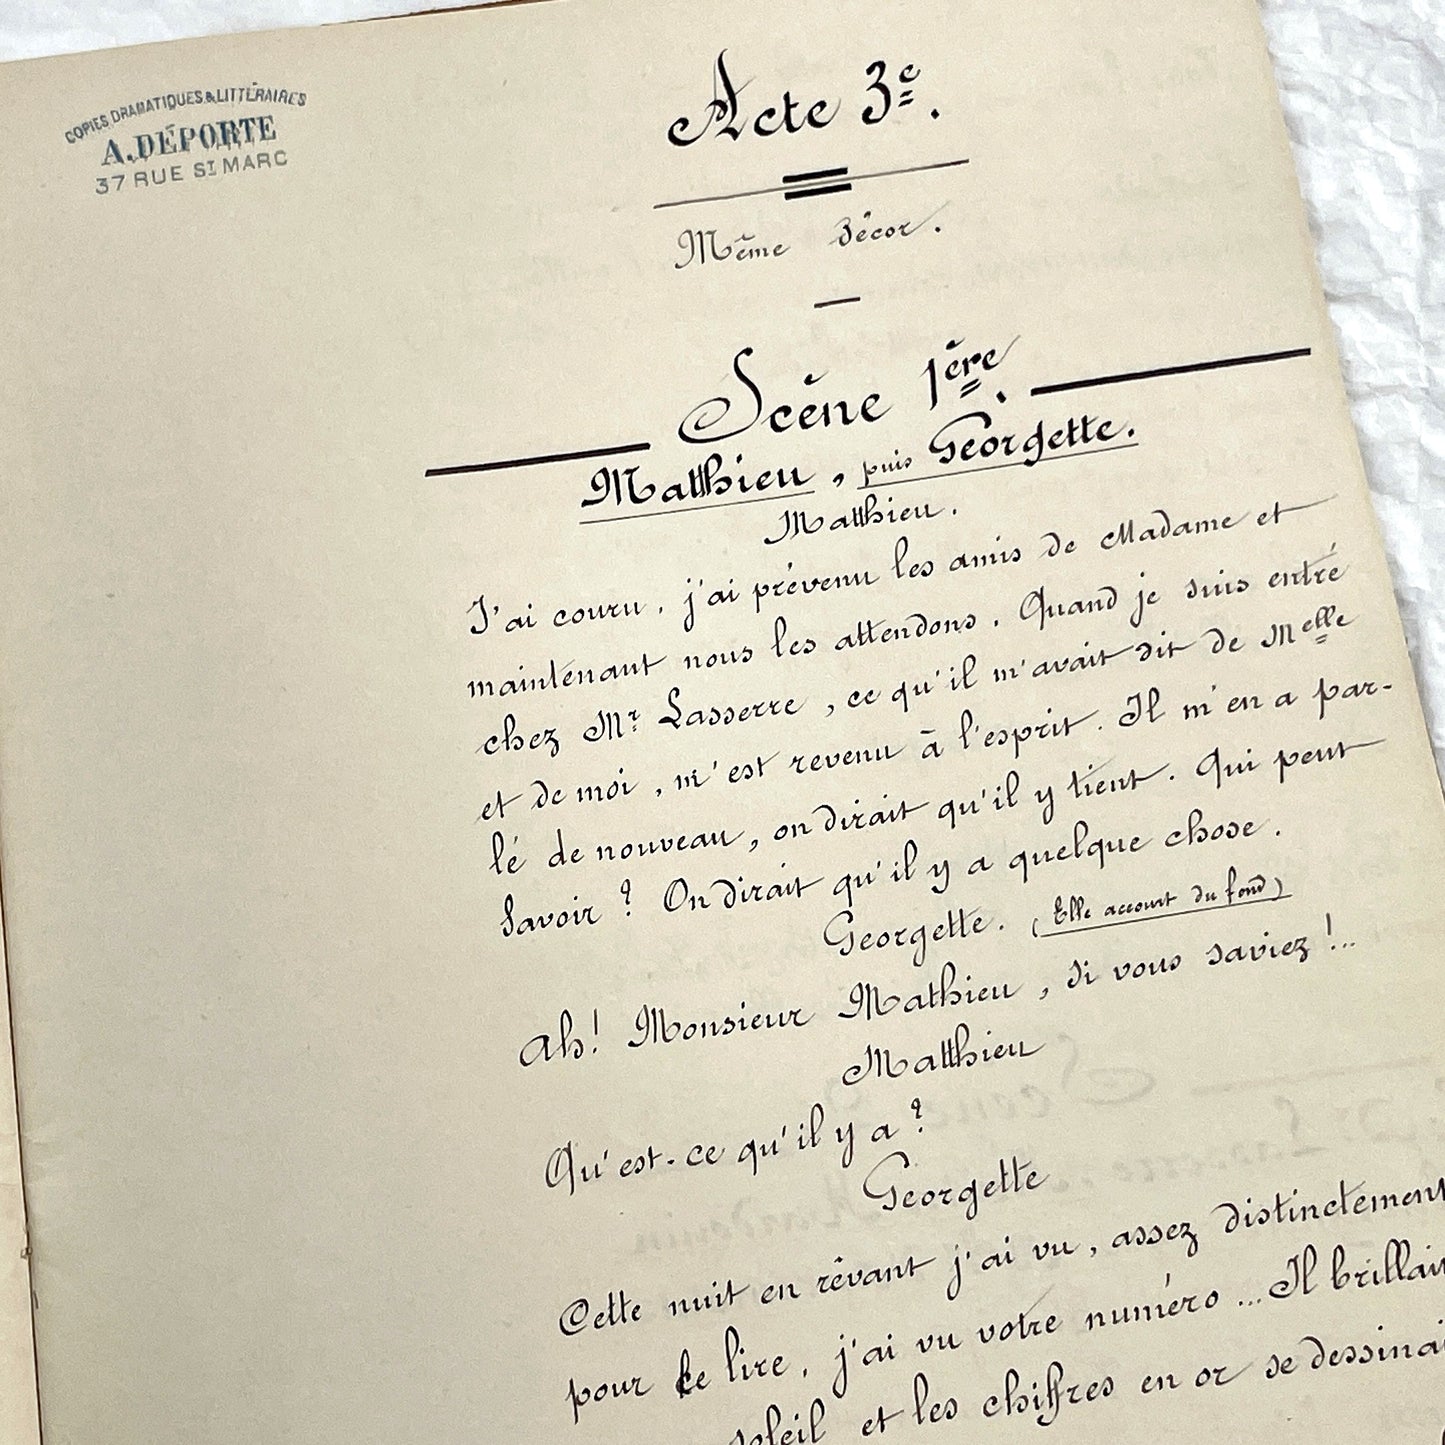 COPIES DRAMATIQUES & LITTÉRAIRES
A. DÉPORTE
37 RUE ST MARC
Acte 3e.
Même Décor.
Scène 1ère.
Matthieu, puis Georgette.
Matthieu.
J'ai couru, j'ai prévenu les amis de Madame et
maintenant nous les attendons. Quand je suis entré
chez Mr Lasserre, ce qu'il m'avait dit de Melle
et de moi, m'est revenu à l'esprit. Il m'en a par-
lé de nouveau, on dirait qu'il y tient. Qui peut
savoir? On dirait qu'il y a quelque chose.
Georgette. (Elle accourt du fond)
Ah! Monsieur Mathieu, si vous saviez!..
Matthieu
Qu'est-ce qu'il y a?
Georgette
Cette nuit en rêvant j'ai vu, assez distinctement
pour le lire, j'ai vu votre numéro... Il brillait
soleil et les chiffres en or se dessinai